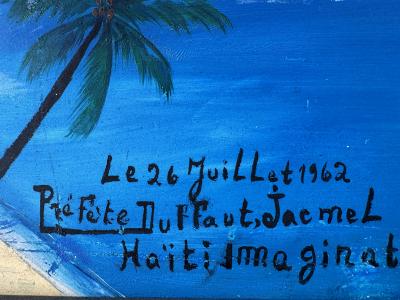 Le 26 Juillet 1962
Préfète Duffaut, Jacmel
Haïti Imaginat